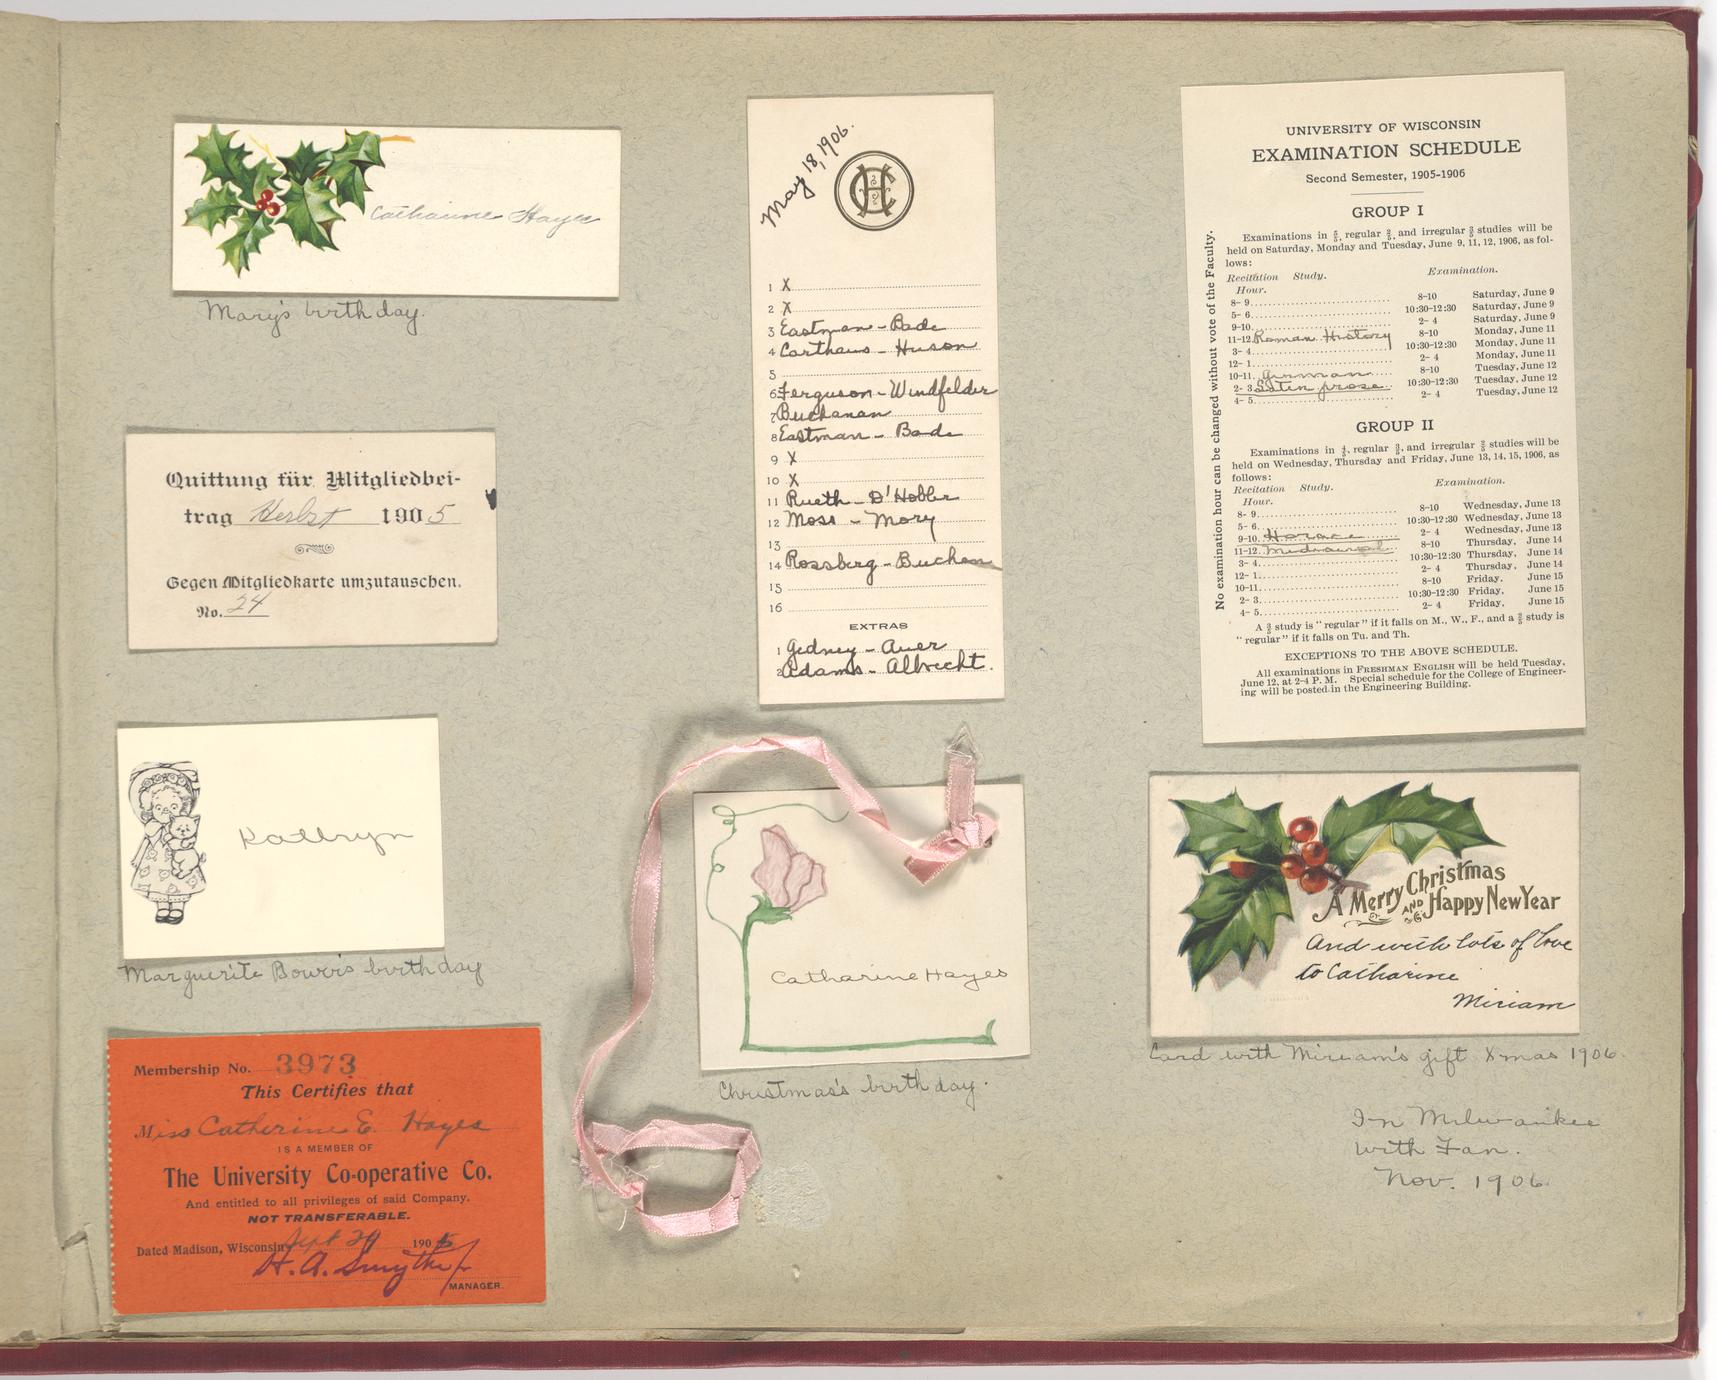 Catharine Hayes
Mary's birthday.
Quittung für Mitgliedbei-
trag Herbst 1905
Gegen Mitgliedkarte umzutauschen.
No. 24
Kathryn
Marguerite Bower's birthday
Membership No. 3973
This Certifies that
Miss Catherine E. Hayes
IS A MEMBER OF
The University Co-operative Co.
And entitled to all privileges of said Company.
NOT TRANSFERABLE.
Dated Madison, Wisconsin Sept 29 1905
MANAGER.
May 18, 1906.
CH
1 X
2 X
3 Eastman - Bade
4 Carthaus - Huson
5
6 Ferguson - Windfelder
7 Buchanan
8 Eastman - Bade
9 X
10 X
11 Rueth - D'Hobler
12 Moss - Mory
13
14 Rossberg - Buchan
15
16
EXTRAS
1 Gedney - Auer
2 Adams - Albrecht.
Catharine Hayes
Christmas's birthday.
No examination hour can be changed without vote of the Faculty.
UNIVERSITY OF WISCONSIN
EXAMINATION SCHEDULE
Second Semester, 1905-1906
GROUP I
Examinations in 5/5, regular 2/5, and irregular 3/5 studies will be
held on Saturday, Monday and Tuesday, June 9, 11, 12, 1906, as fol-
lows:
Recitation Study. Examination.
Hour.
8- 9 8-10 Saturday, June 9
5- 6 10:30-12:30 Saturday, June 9
9-10 2- 4 Saturday, June 9
11-12 Roman History 8-10 Monday, June 11
3- 4 10:30-12:30 Monday, June 11
12- 1 2- 4 Monday, June 11
10-11 German 8-10 Tuesday, June 12
2- 3 Latin prose 10:30-12:30 Tuesday, June 12
4- 5 2- 4 Tuesday, June 12
GROUP II
Examinations in 4/5, regular 3/5, and irregular 2/5 studies will be
held on Wednesday, Thursday and Friday, June 13, 14, 15, 1906, as
follows:
Recitation Study. Examination.
Hour.
8- 9 8-10 Wednesday, June 13
5- 6 10:30-12:30 Wednesday, June 13
9-10 Horace 2- 4 Wednesday, June 13
11-12 Mediaeval 8-10 Thursday, June 14
3- 4 10:30-12:30 Thursday, June 14
12- 1 2- 4 Thursday, June 14
10-11 8-10 Friday, June 15
2- 3 10:30-12:30 Friday, June 15
4- 5 2- 4 Friday, June 15
A 3/5 study is "regular" if it falls on M., W., F., and a 2/5 study is
"regular" if it falls on Tu. and Th.
EXCEPTIONS TO THE ABOVE SCHEDULE.
All examinations in FRESHMAN ENGLISH will be held Tuesday,
June 12, at 2-4 P. M. Special schedule for the College of Engineer-
ing will be posted in the Engineering Building.
A Merry Christmas
AND Happy New Year
And with lots of love
to Catharine
Miriam
Card with Miriam's gift Xmas 1906.
In Milwaukee
with Fan.
Nov. 1906.